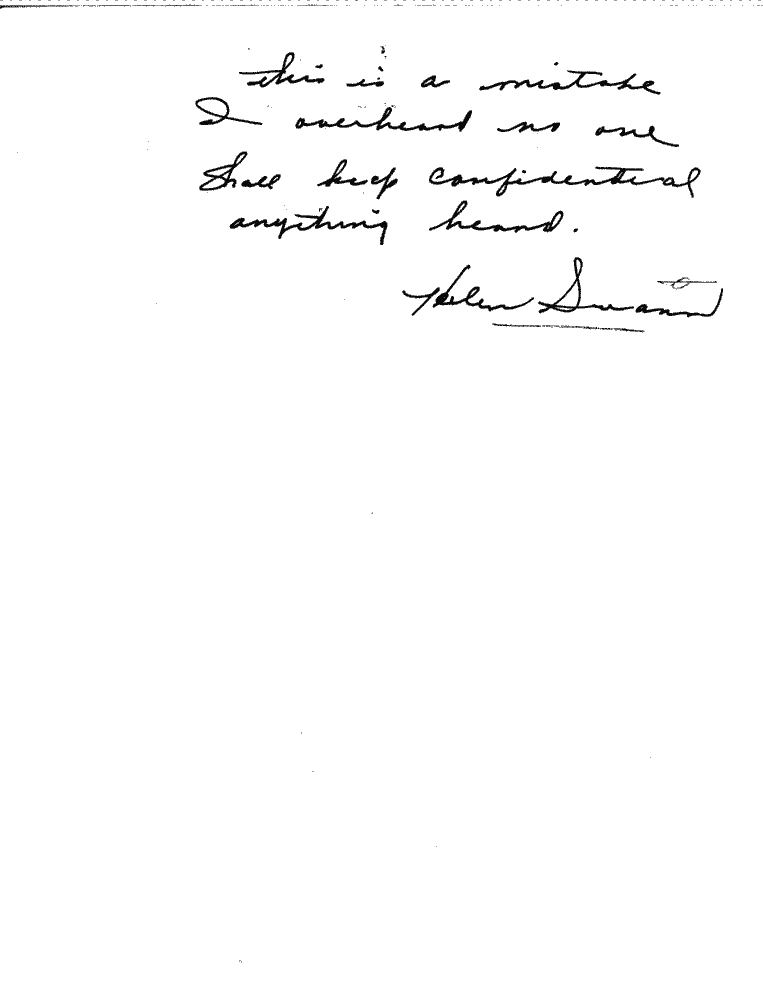 this is a mistake
I overheard no one
Shall keep confidential
anything heard.
Helen Swann